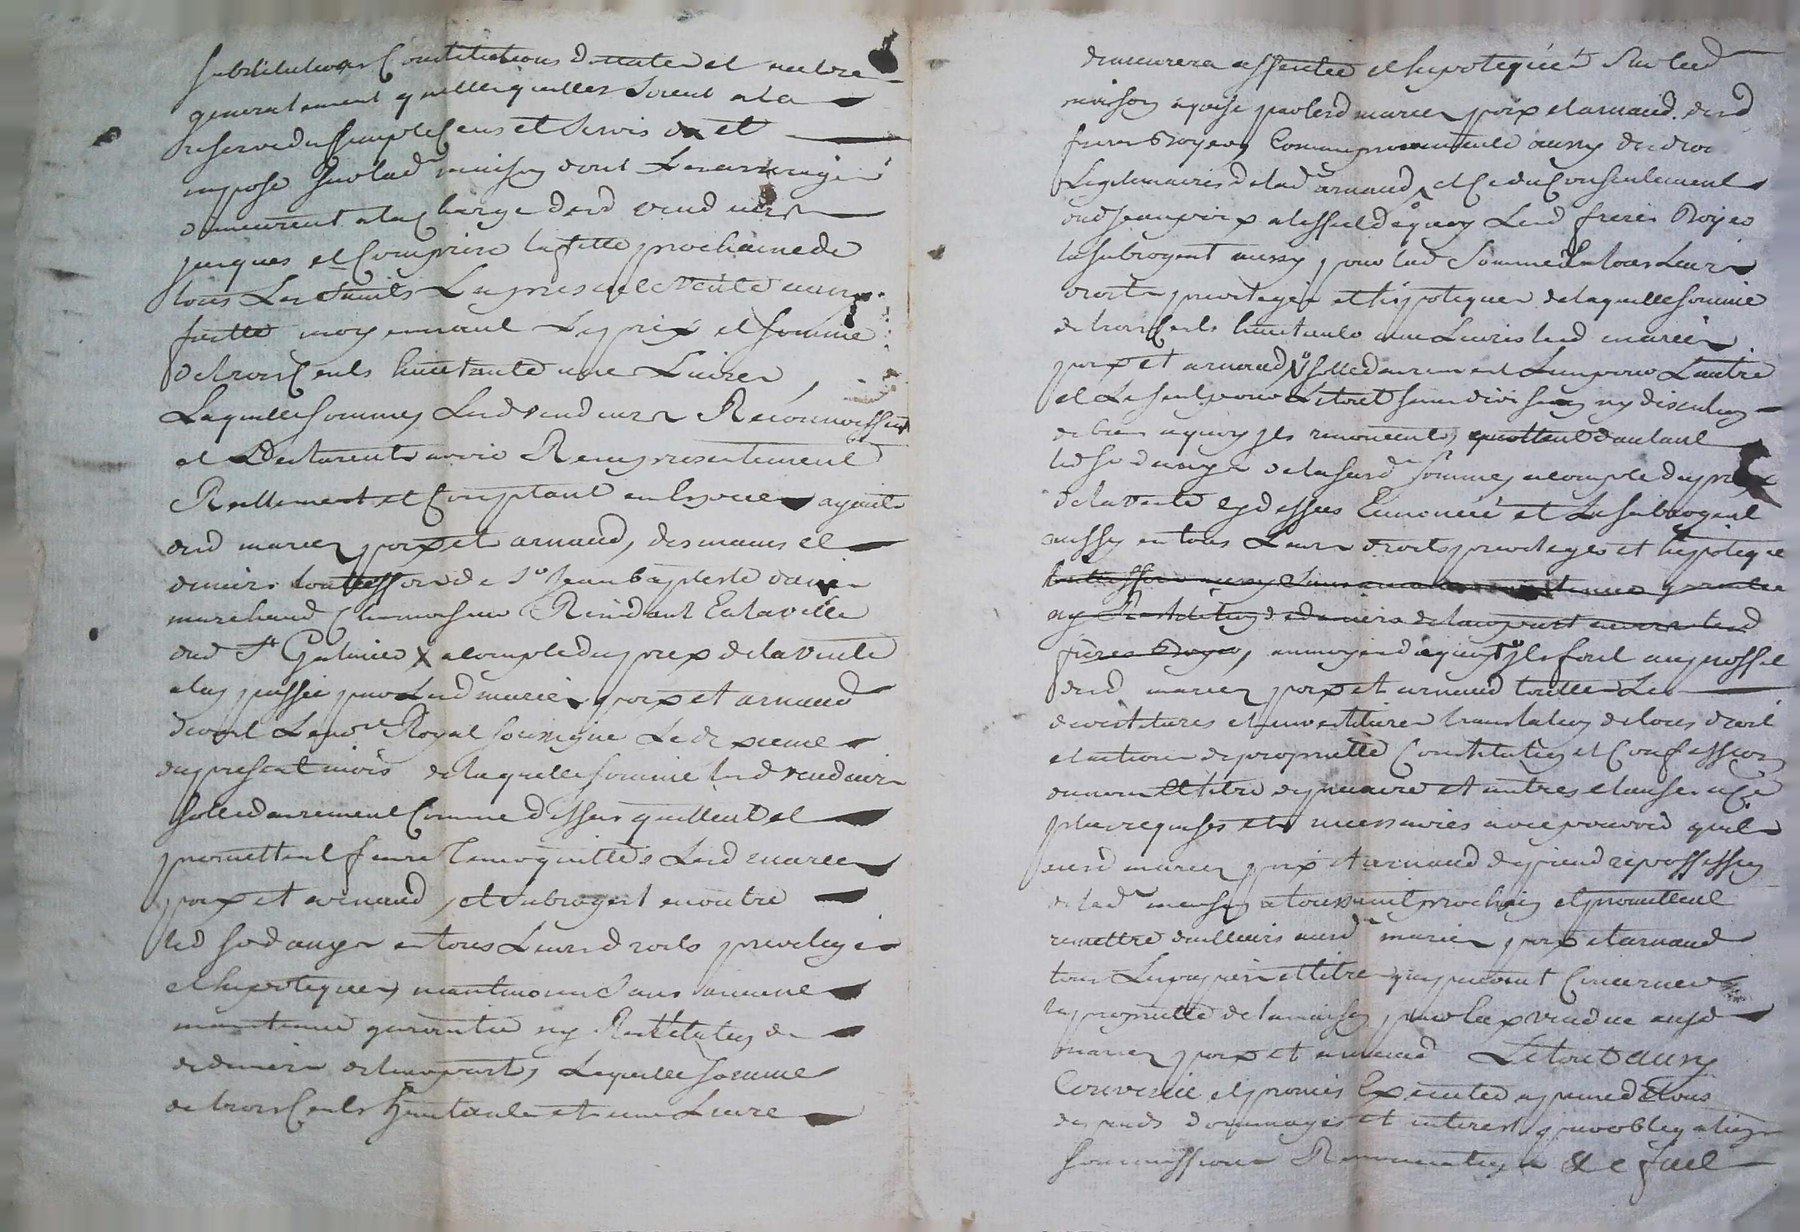 substitutions Constitutions dottate et autre
generalement quelles quelles soient a la
reserve du simple Cens et servis du et
impose sur lad maison dont Les arrerages
demeurent a la Charge desd vendeurs
jusques et Compris la fette prochaine de
tous Les saints La presente vente aura
faitte moyennant Le prix et somme
de trois Cents huictante une Livres
Laquelle somme Lesd vendeurs Reconnoissent
et Declarent avoir Receu presentement
Reellement et Comptant en especes
desd mariez poix et arnaud, des mains et
deniers toutteffois de sr Jean baptiste
marchand Residant En la ville
dud St Galmier a compte du prix de la vente
a luy passée par Lesd mariez poix et arnaud
devant Le nore Royal soussigne Le dixieme
du present mois de laquelle somme lesd vendeurs
sollidairement Comme dessus quittent et
promettent faire tenir quittes Lesd mariez
poix et arnaud, et subrogent en outre
led en tous Leurs droits privileges
et hipoteques neantmoins sans aucune
maintenue garantie ny Restitution de
deniers de leur part, Laquelle somme
de trois Cents huictante et une Livre
demeurera affectée et hipotequée sur lad
maison aquise par lesd mariez poix et arnaud desd
freres Royer, Comme aussy
Legitimaires de lad arnaud, et Ce du Consentement
dud Jean poix a leffect de quoy Lesd freres Royer
la subrogent aussy pour lad somme En tous Leurs
droits privileges et hipoteques de laquelle somme
de trois Cents huictante une Livres lesd mariez
poix et arnaud sollidairement Lun pour Lautre
et Le seul pour Le tout sans division ny discution
de biens a quoy ils renoncent, quittent dautant
led de la susd somme a compte du prix
de la vente cy dessus Enoncée et Le subrogent
aussy en tous Leurs droits privileges et hipoteques
ny Restitution de deniers de leur part envers lesd
freres Royer, au moyen de quoy ils font au proffit
desd mariez poix et arnaud touttes Les
devestitures et investitures translation de tous droit
et actions de propriette Constitution et Confession
du nom et titre de precaire et autres clauses a Ce
plus requises et necessaires avec pouvoir quils
ausd mariez poix et arnaud de prendre possession
de lad maison a toussaint prochain et promettent
remettre dailleurs ausd mariez poix et arnaud
tous Les papiers et titres qui peuvent Concerner
la propriette de la maison par Eux vendue ausd
mariez poix et arnaud Le tout aussy
Convenu et promis Executer a peine de tous
despends dommages et interest, par obligation
soummissions Renonciations &c fait